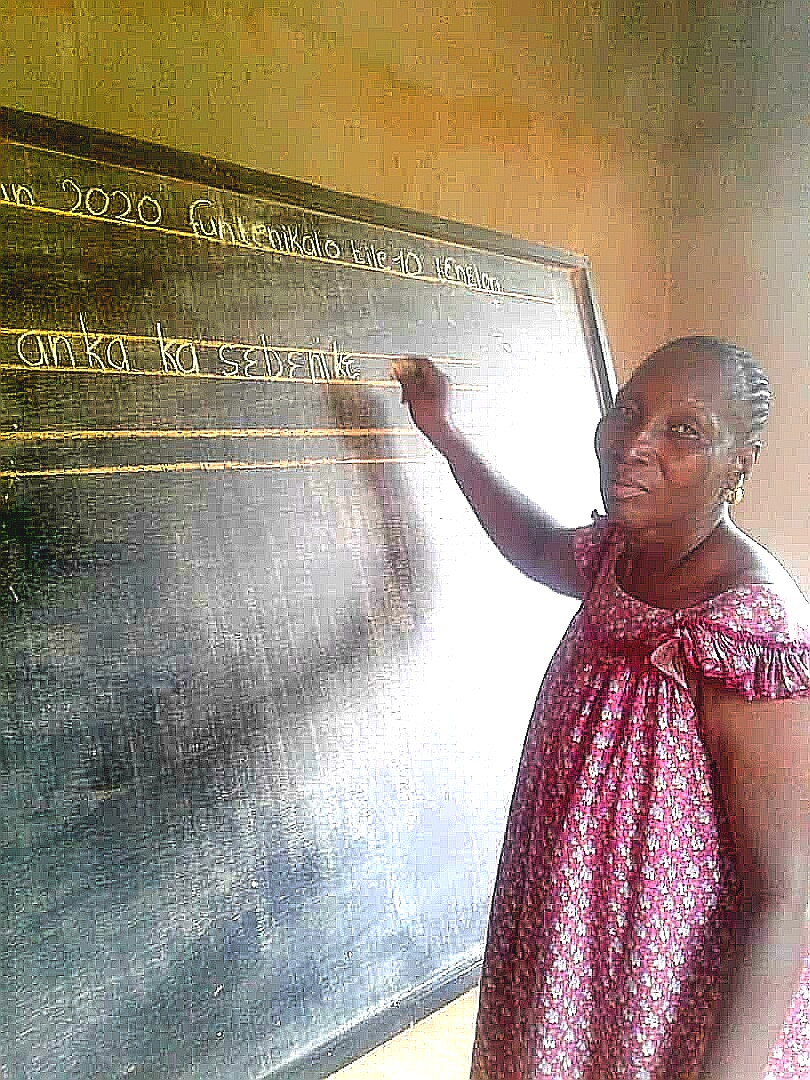 2020 funtenikalo tile 10 tɛnɛlon
anka ka sɛbɛnkɛ